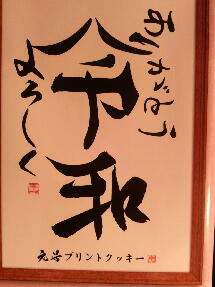 ありがとう
令和
よろしく
元号プリントクッキー